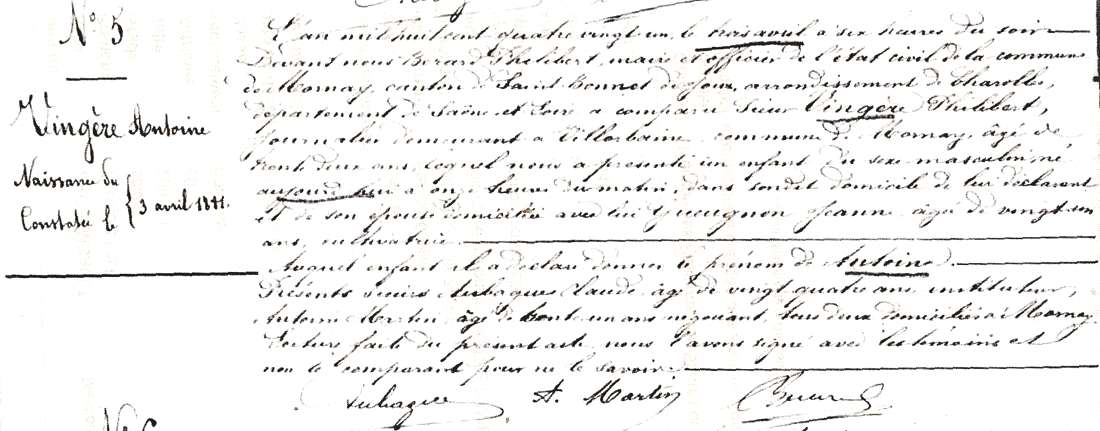 N° 5
Vingère Antoine
Naissance du
Constatée le
3 avril 1881.
L'an mil huit cent quatre vingt un, le trois avril à six heures du soir
Devant nous Berard Philibert, maire et officier de l'état civil de la commune
de Mornay, canton de Saint Bonnet de Joux, arrondissement de Charolles,
département de Saône et Loire a comparu Sieur Vingère Philibert,
journalier demeurant à Villorbaine commune de Mornay, âgé de
trente deux ans, lequel nous a présenté un enfant du sexe masculin, né
aujourd'hui à onze heures du matin, dans son dit domicile de lui déclarant
et de son épouse domiciliée avec lui Gueugnon Jeanne âgée de vingt
ans, cultivatrice.
Auquel enfant il a déclaré donner le prénom de Antoine.
Présents sieurs Aubague Claude, âgé de vingt quatre ans instituteur,
Antoine Martin, âgé de trente un ans négociant, tous deux domiciliés à Mornay.
Lecture faite du présent acte nous l'avons signé avec les témoins et
non le comparant pour ne le savoir.
Aubague A. Martin Berard